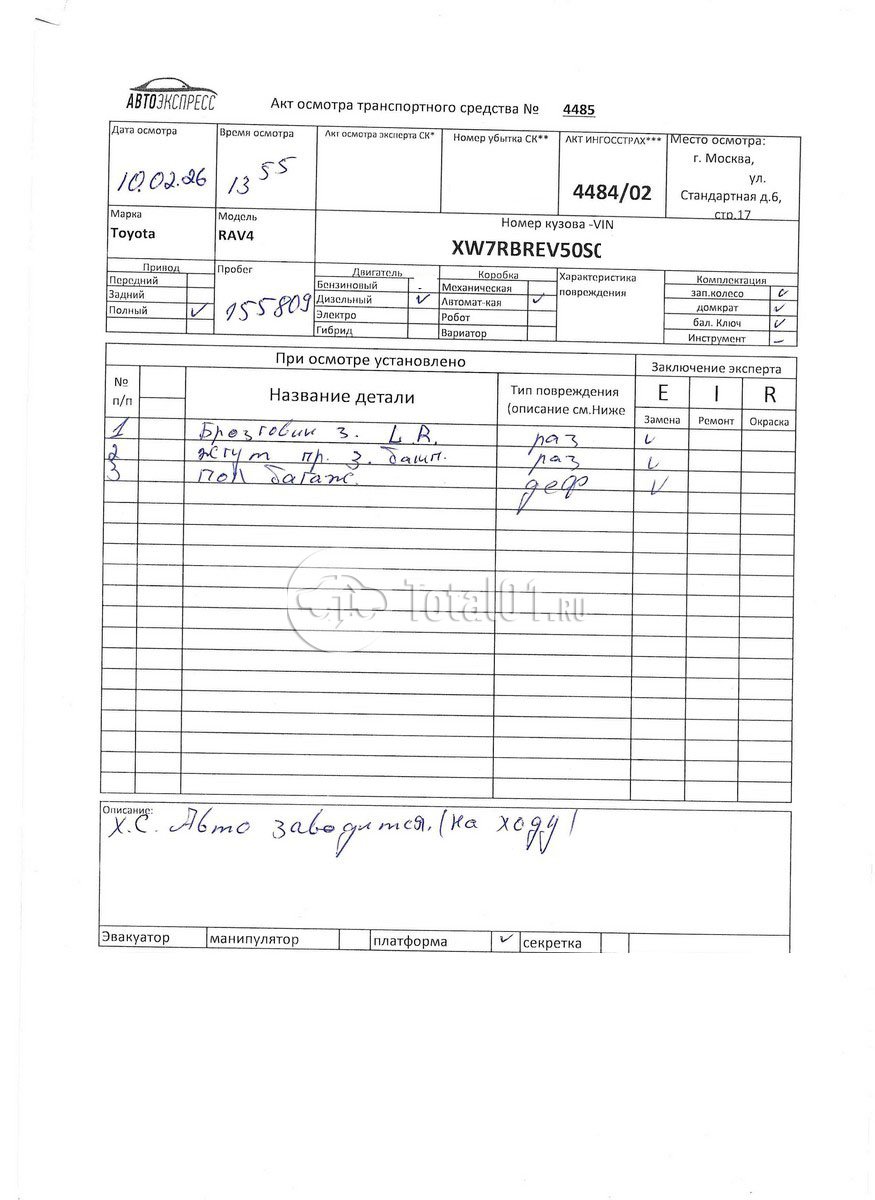 АВТОЭКСПРЕСС
Акт осмотра транспортного средства № 4485
Дата осмотра
10.02.26
Время осмотра
13 55
Акт осмотра эксперта СК*
Номер убытка СК**
АКТ ИНГОССТРАХ***
4484/02
Место осмотра:
г. Москва,
ул.
Стандартная д.6,
стр.17
Марка
Toyota
Модель
RAV4
Номер кузова -VIN
XW7RBREV50S
Привод
Передний
Задний
Полный ✓
Пробег
155809
Двигатель
Бензиновый -
Дизельный ✓
Электро
Гибрид
Коробка
Механическая
Автомат-кая ✓
Робот
Вариатор
Характеристика
повреждения
Комплектация
зап.колесо ✓
домкрат ✓
бал. Ключ ✓
Инструмент –
При осмотре установлено
Заключение эксперта
№
п/п
Название детали
Тип повреждения
(описание см.Ниже
E I R
Замена Ремонт Окраска
1 Брозговик з. L.R. раз ✓
2 жгут пр. з. бамп. раз ✓
3 Пол багаж. деф ✓
Total01.RU
Описание:
Х.С. Авто заводится. (на ходу)
Эвакуатор манипулятор платформа ✓ секретка